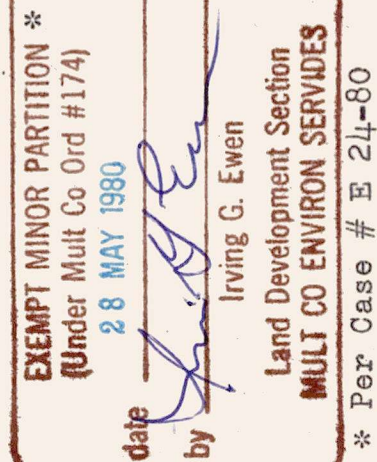 EXEMPT MINOR PARTITION *
(Under Mult Co Ord #174)
28 MAY 1980
date
by
Irving G. Ewen
Land Development Section
MULT CO ENVIRON SERVIDES
* Per Case # E 24-80